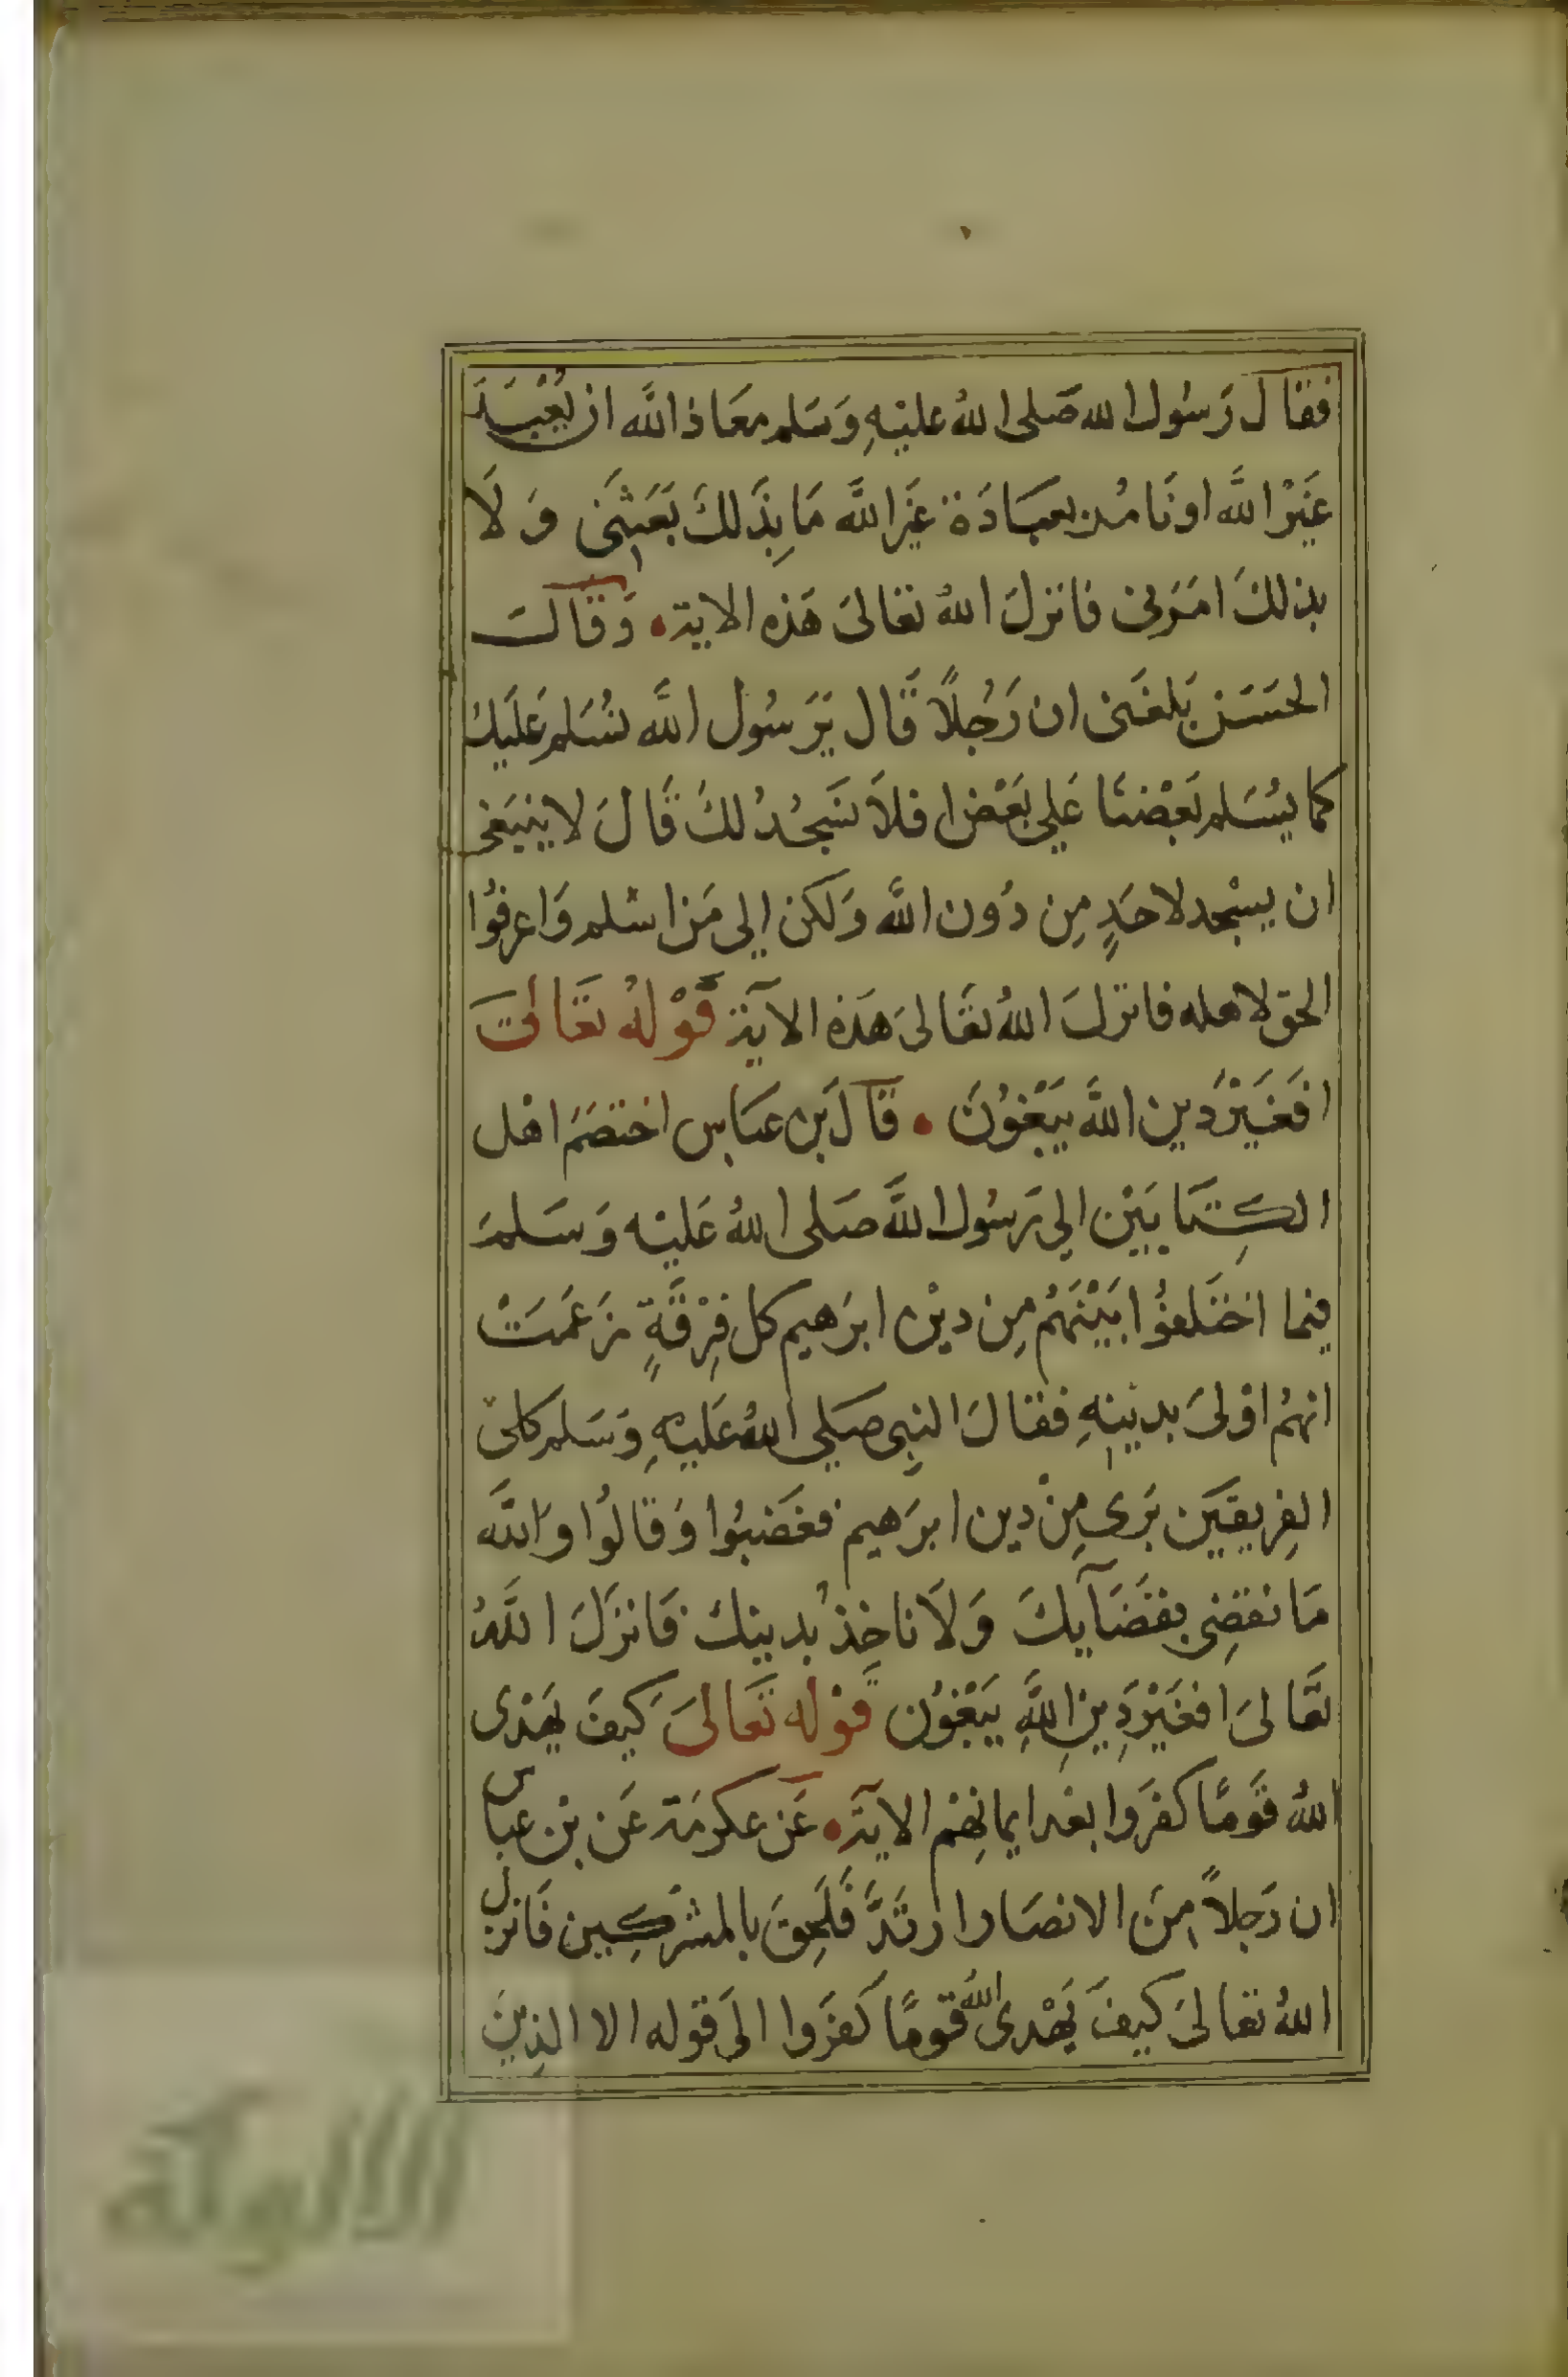 فقال رَسُول الله صَلى اللهُ عليْهِ وَسَلم معَاذ الله ان يُعْبَدَ
غَيْرُ الله او نَامُر بعبَادَة غَيْر الله مَا بِذَلكَ بَعَثَنِى وَلَا
بذلكَ امَرَنى فانزلَ اللهُ تعَالىَ هَذه الاية وَقَالَ
الحسَن بَلغَنى ان رَجُلاً قَال يَرَسُول الله نسَلم عَليَك
كما يسَلم بَعْضنَا عَلي بَعْض افلاَ نَسْجُدُ لكَ قَالَ لا ينبَغى
ان يسْجد لاحَدٍ مِن دُون الله وَلكن الي مَن اسْلم وَاعرفُوا
الحق لاهله فانزلَ اللهُ تعَالىَ هَذه الآية قَوْلهُ تعَالىَ
افَغَيْرَ دين الله يَبْغوُنَ قَالَ بن عبَاس اختصَمَ اهل
الكِتَابَيْن الي رَسُول الله صَلى اللهُ عَليْه وَسَلمَ
فيما اختَلفُوا بَيْنَهُم مِن ديْن ابرَهيم كل فِرْقَةٍ زَعَمَتْ
انهُم اوْلىَ بدينهِ فقالَ النبِى صَلي اللهُ عَليْهِ وَسَلم كلىَ
الفِريقَيَن بَرى مِنْ دين ابرَهيم فغَضبُوا وَقَالُوا وَالله
مَا نقضِى بقضَآيكَ وَلاَ ناخِذُ بدينك فَانزَلَ اللهُ
تعَالىَ افغَيْرَ دِين اللهِ يَبْغوُن قوْله تعَالىَ كَيفَ يَهْدى
اللهُ قَومًا كفَروا بعْد ايمانِهِم الآيَة عَن عكرمَة عَن بْن عبَاس
ان رَجلاً مِنَ الانصَار ارتَدَّ فَلَحِقَ بالمشْركِين فَانزل
اللهُ تعَالىَ كَيفَ يَهْدى الله قومًا كفَروا الىَ قوله الا الذِينَ
الألوكة